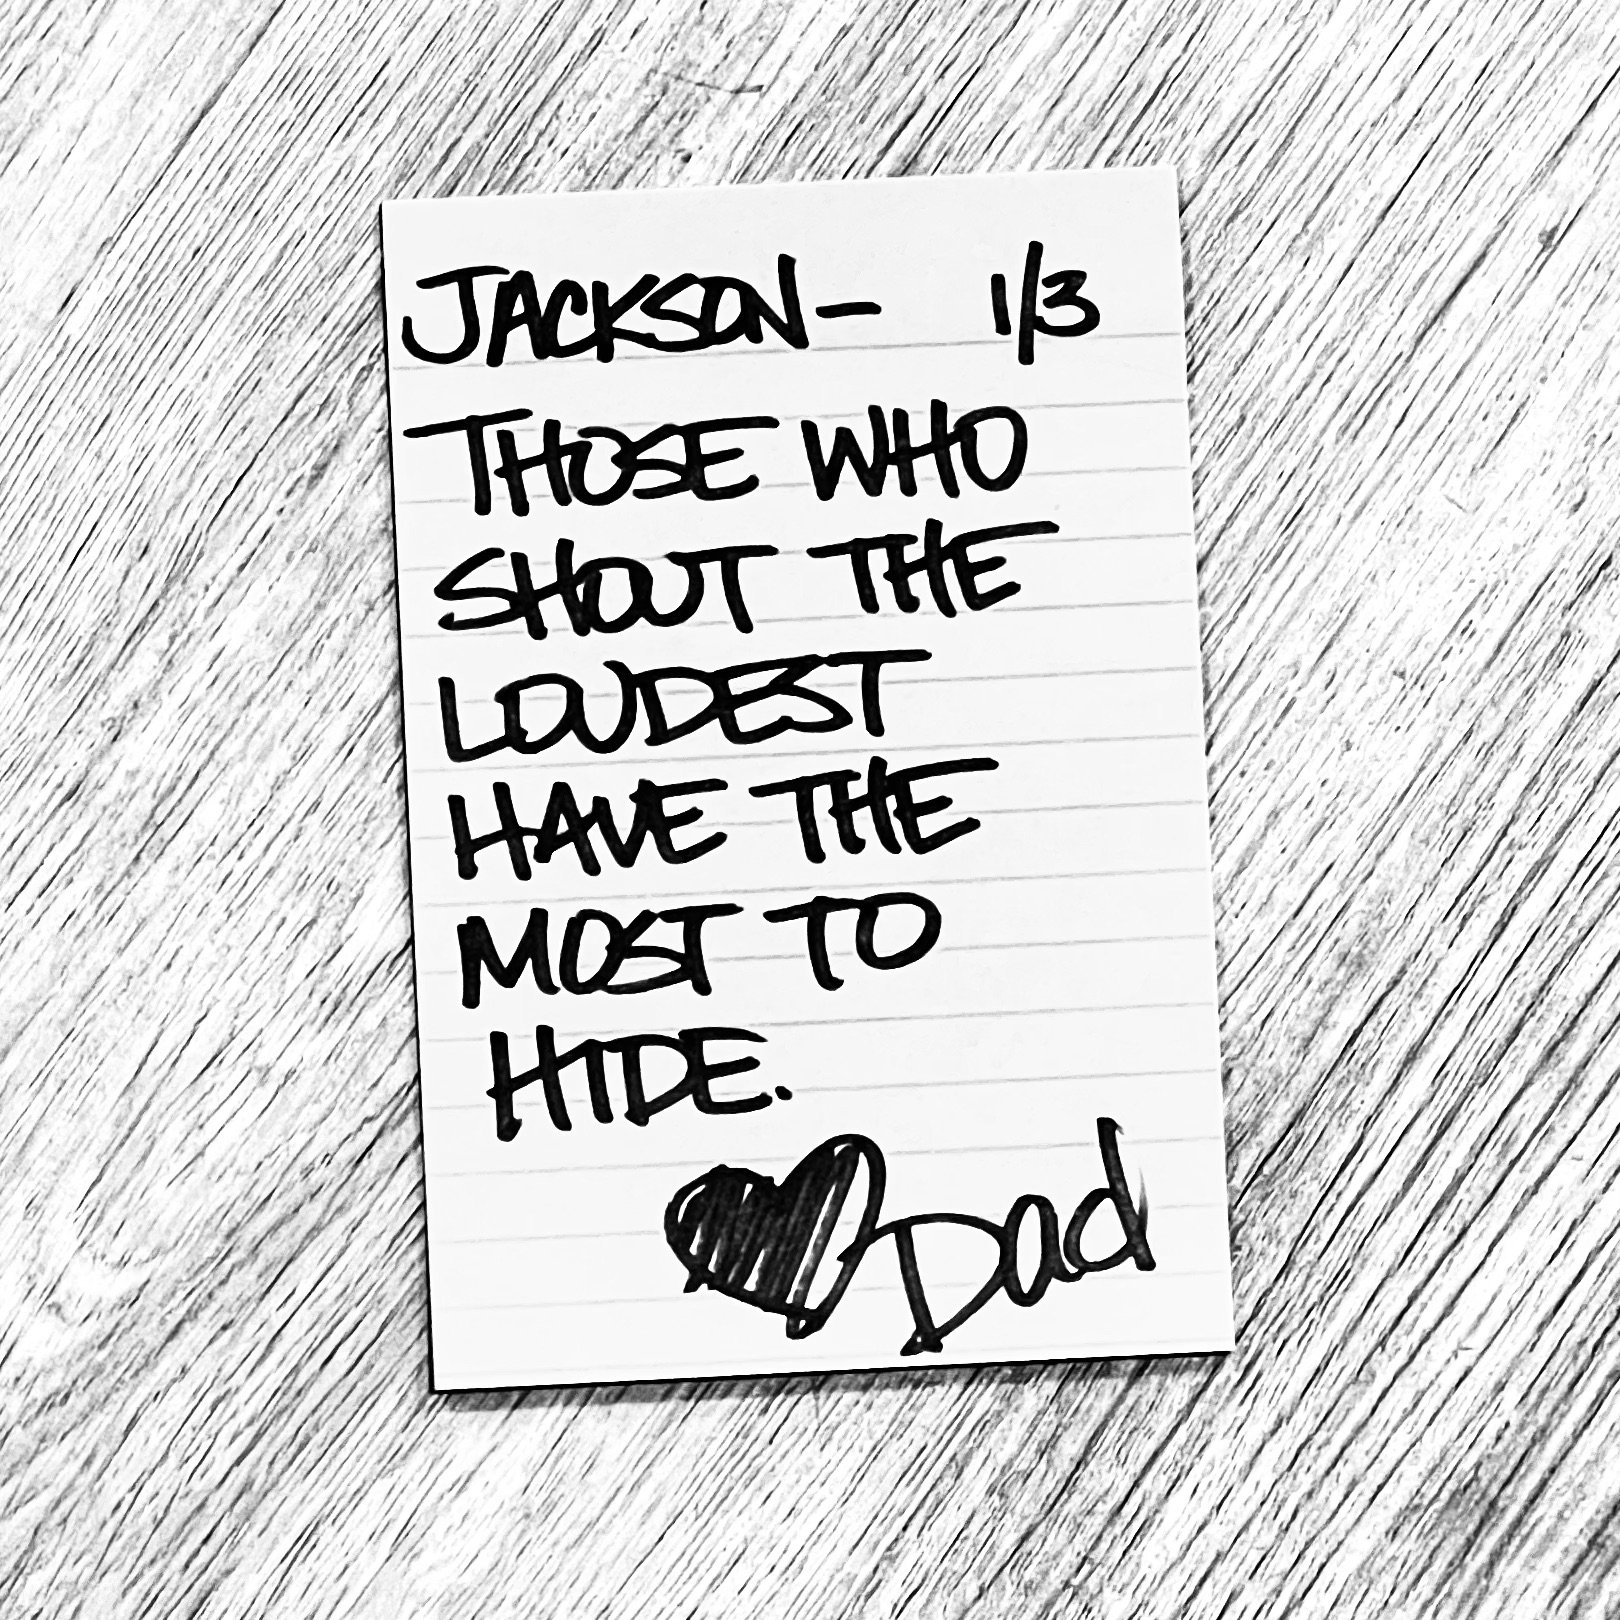 JACKSON- 1/3
THOSE WHO
SHOUT THE
LOUDEST
HAVE THE
MOST TO
HIDE.
Dad